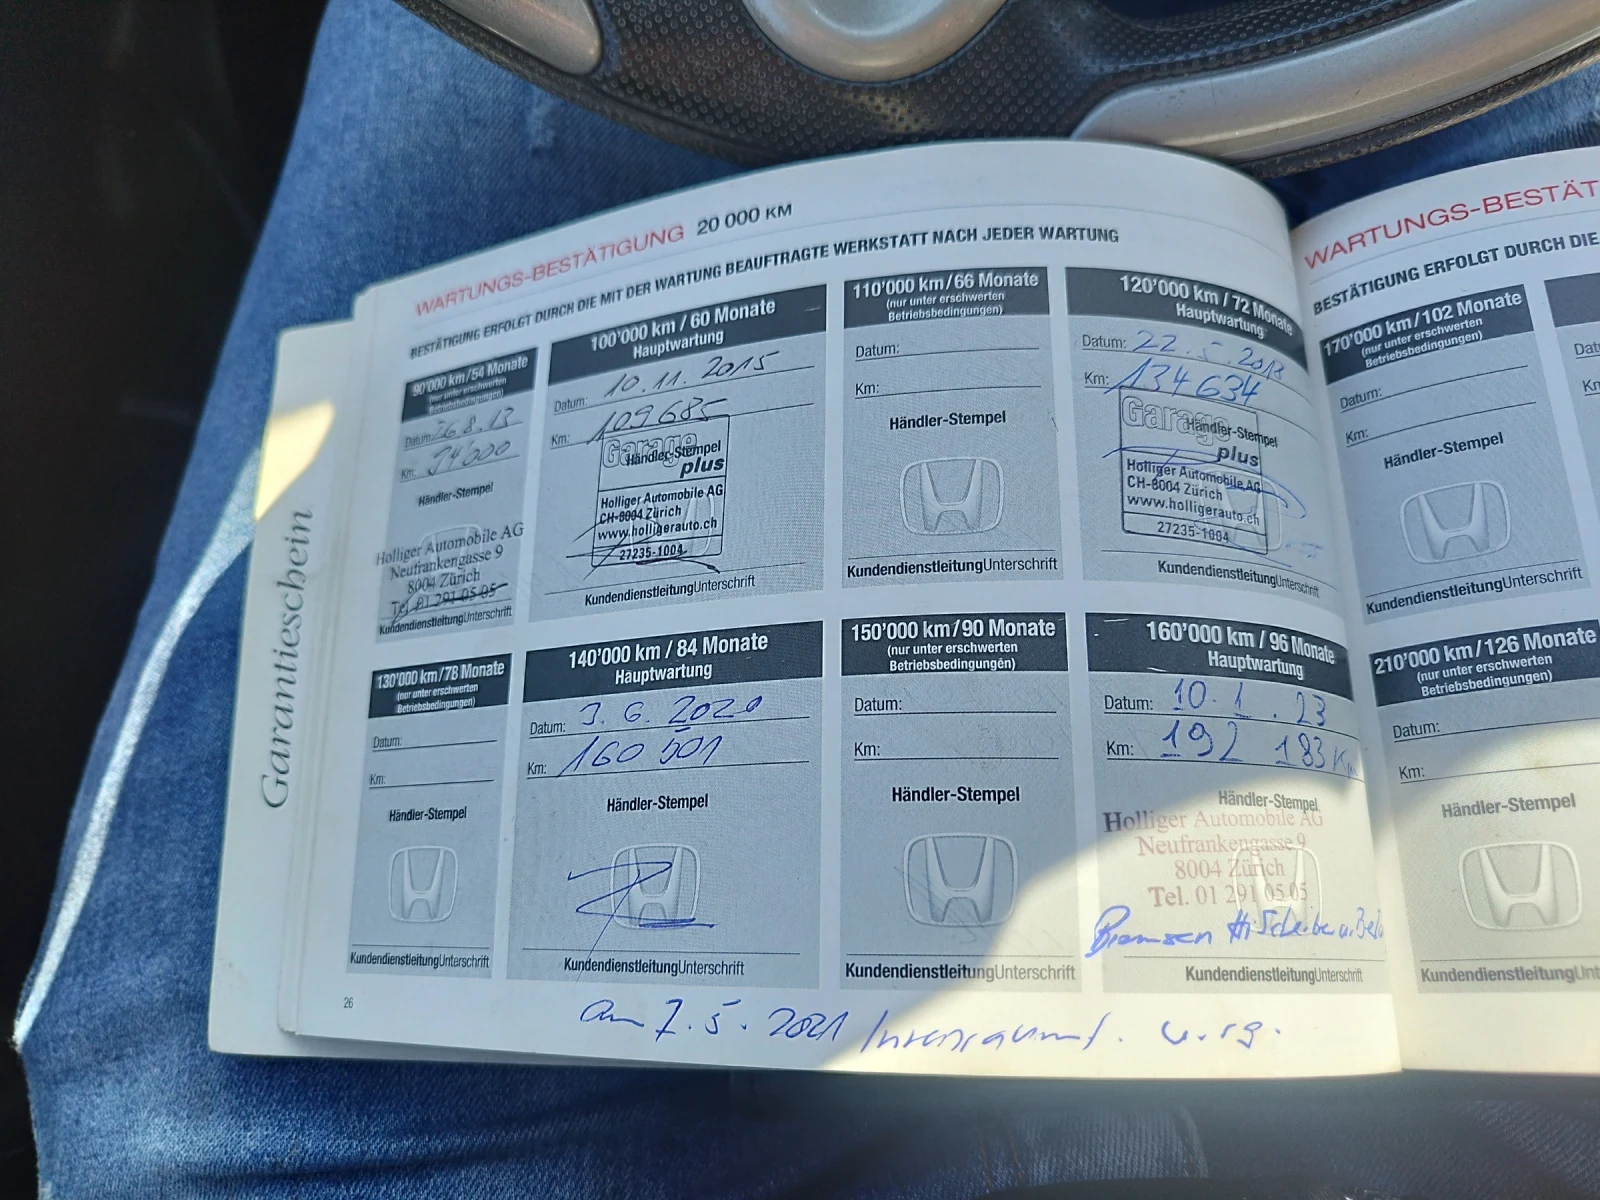 Garantieschein
WARTUNGS-BESTÄTIGUNG 20 000 KM
BESTÄTIGUNG ERFOLGT DURCH DIE MIT DER WARTUNG BEAUFTRAGTE WERKSTATT NACH JEDER WARTUNG
90'000 km/54 Monate
(nur unter erschwerten
Betriebsbedingungen)
Datum: 26.8.13
Km: 94000
Händler-Stempel
Holliger Automobile AG
Neufrankengasse 9
8004 Zürich
Tel. 01 291 05 05
KundendienstleitungUnterschrift
100'000 km / 60 Monate
Hauptwartung
Datum: 10.11.2015
Km: 109685
Garage
Händler-Stempel
plus
Holliger Automobile AG
CH-8004 Zürich
www.holligerauto.ch
27235-1004
KundendienstleitungUnterschrift
110'000 km/66 Monate
(nur unter erschwerten
Betriebsbedingungen)
Datum:
Km:
Händler-Stempel
KundendienstleitungUnterschrift
120'000 km / 72 Monate
Hauptwartung
Datum: 22.5.2018
Km: 134634
Garage
Händler-Stempel
plus
Holliger Automobile AG
CH-8004 Zürich
www.holligerauto.ch
27235-1004
KundendienstleitungUnterschrift
130'000 km/78 Monate
(nur unter erschwerten
Betriebsbedingungen)
Datum:
Km:
Händler-Stempel
KundendienstleitungUnterschrift
140'000 km / 84 Monate
Hauptwartung
Datum: 3.6.2020
Km: 160 501
Händler-Stempel
KundendienstleitungUnterschrift
150'000 km/90 Monate
(nur unter erschwerten
Betriebsbedingungen)
Datum:
Km:
Händler-Stempel
KundendienstleitungUnterschrift
160'000 km / 96 Monate
Hauptwartung
Datum: 10.1.23
Km: 192 183 Km
Händler-Stempel
Holliger Automobile AG
Neufrankengasse 9
8004 Zürich
Tel. 01 291 05 05
Bremsen
KundendienstleitungUnterschrift
26
am 7.5.2021
WARTUNGS-BESTÄT
BESTÄTIGUNG ERFOLGT DURCH DIE
170'000 km/102 Monate
(nur unter erschwerten
Betriebsbedingungen)
Datum:
Km:
Händler-Stempel
KundendienstleitungUnterschrift
Dat
Kn
210'000 km/126 Monate
(nur unter erschwerten
Betriebsbedingungen)
Datum:
Km:
Händler-Stempel
KundendienstleitungUnt